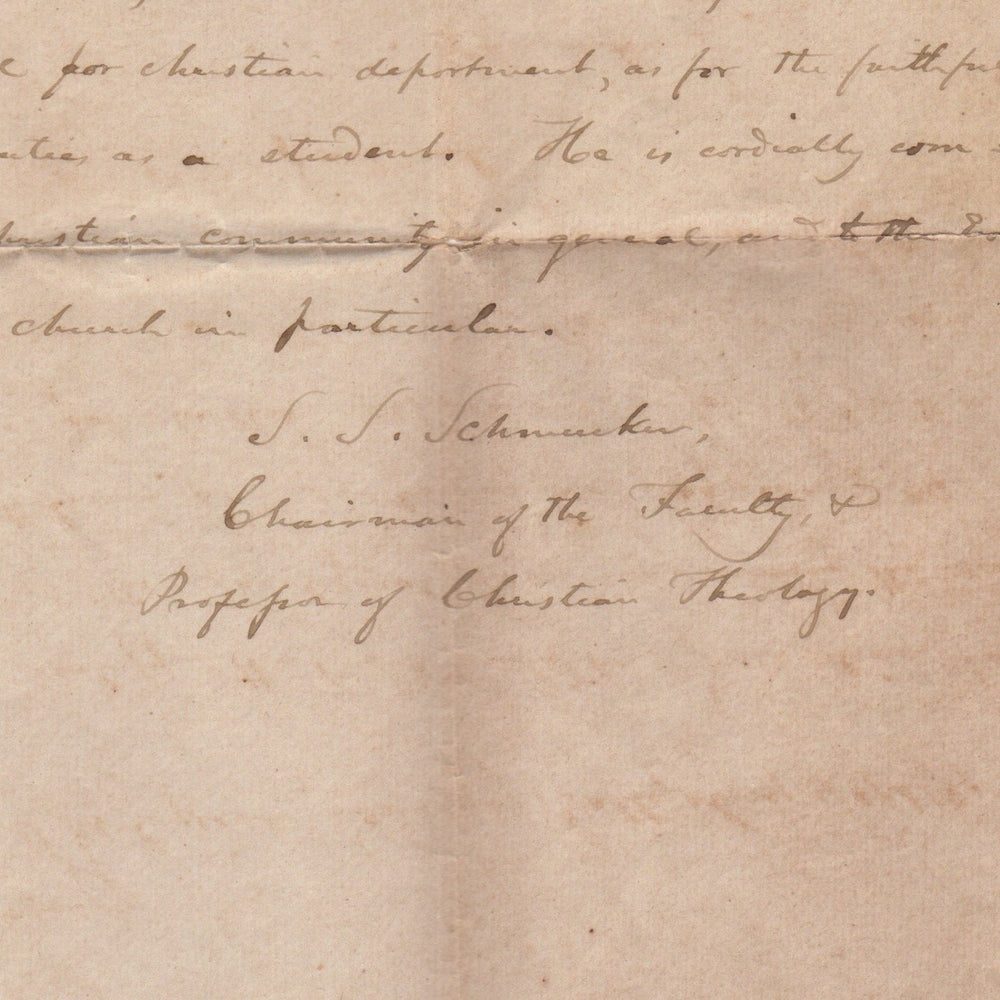 for christian deportment, as for the faithful
as a student. He is cordially com-
christian community in general, and to the
church in particular.
S. S. Schmucker,
Chairman of the Faculty, &
Professor of Christian Theology.